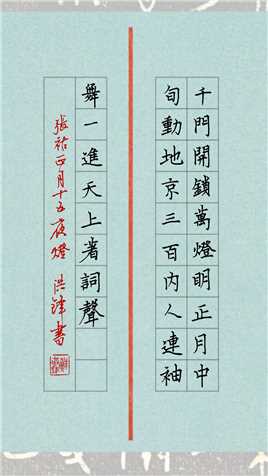 千門開鎖萬燈明正月中
旬動地京三百内人連袖
舞一進天上著詞聲
張祜正月十五夜燈 洪書